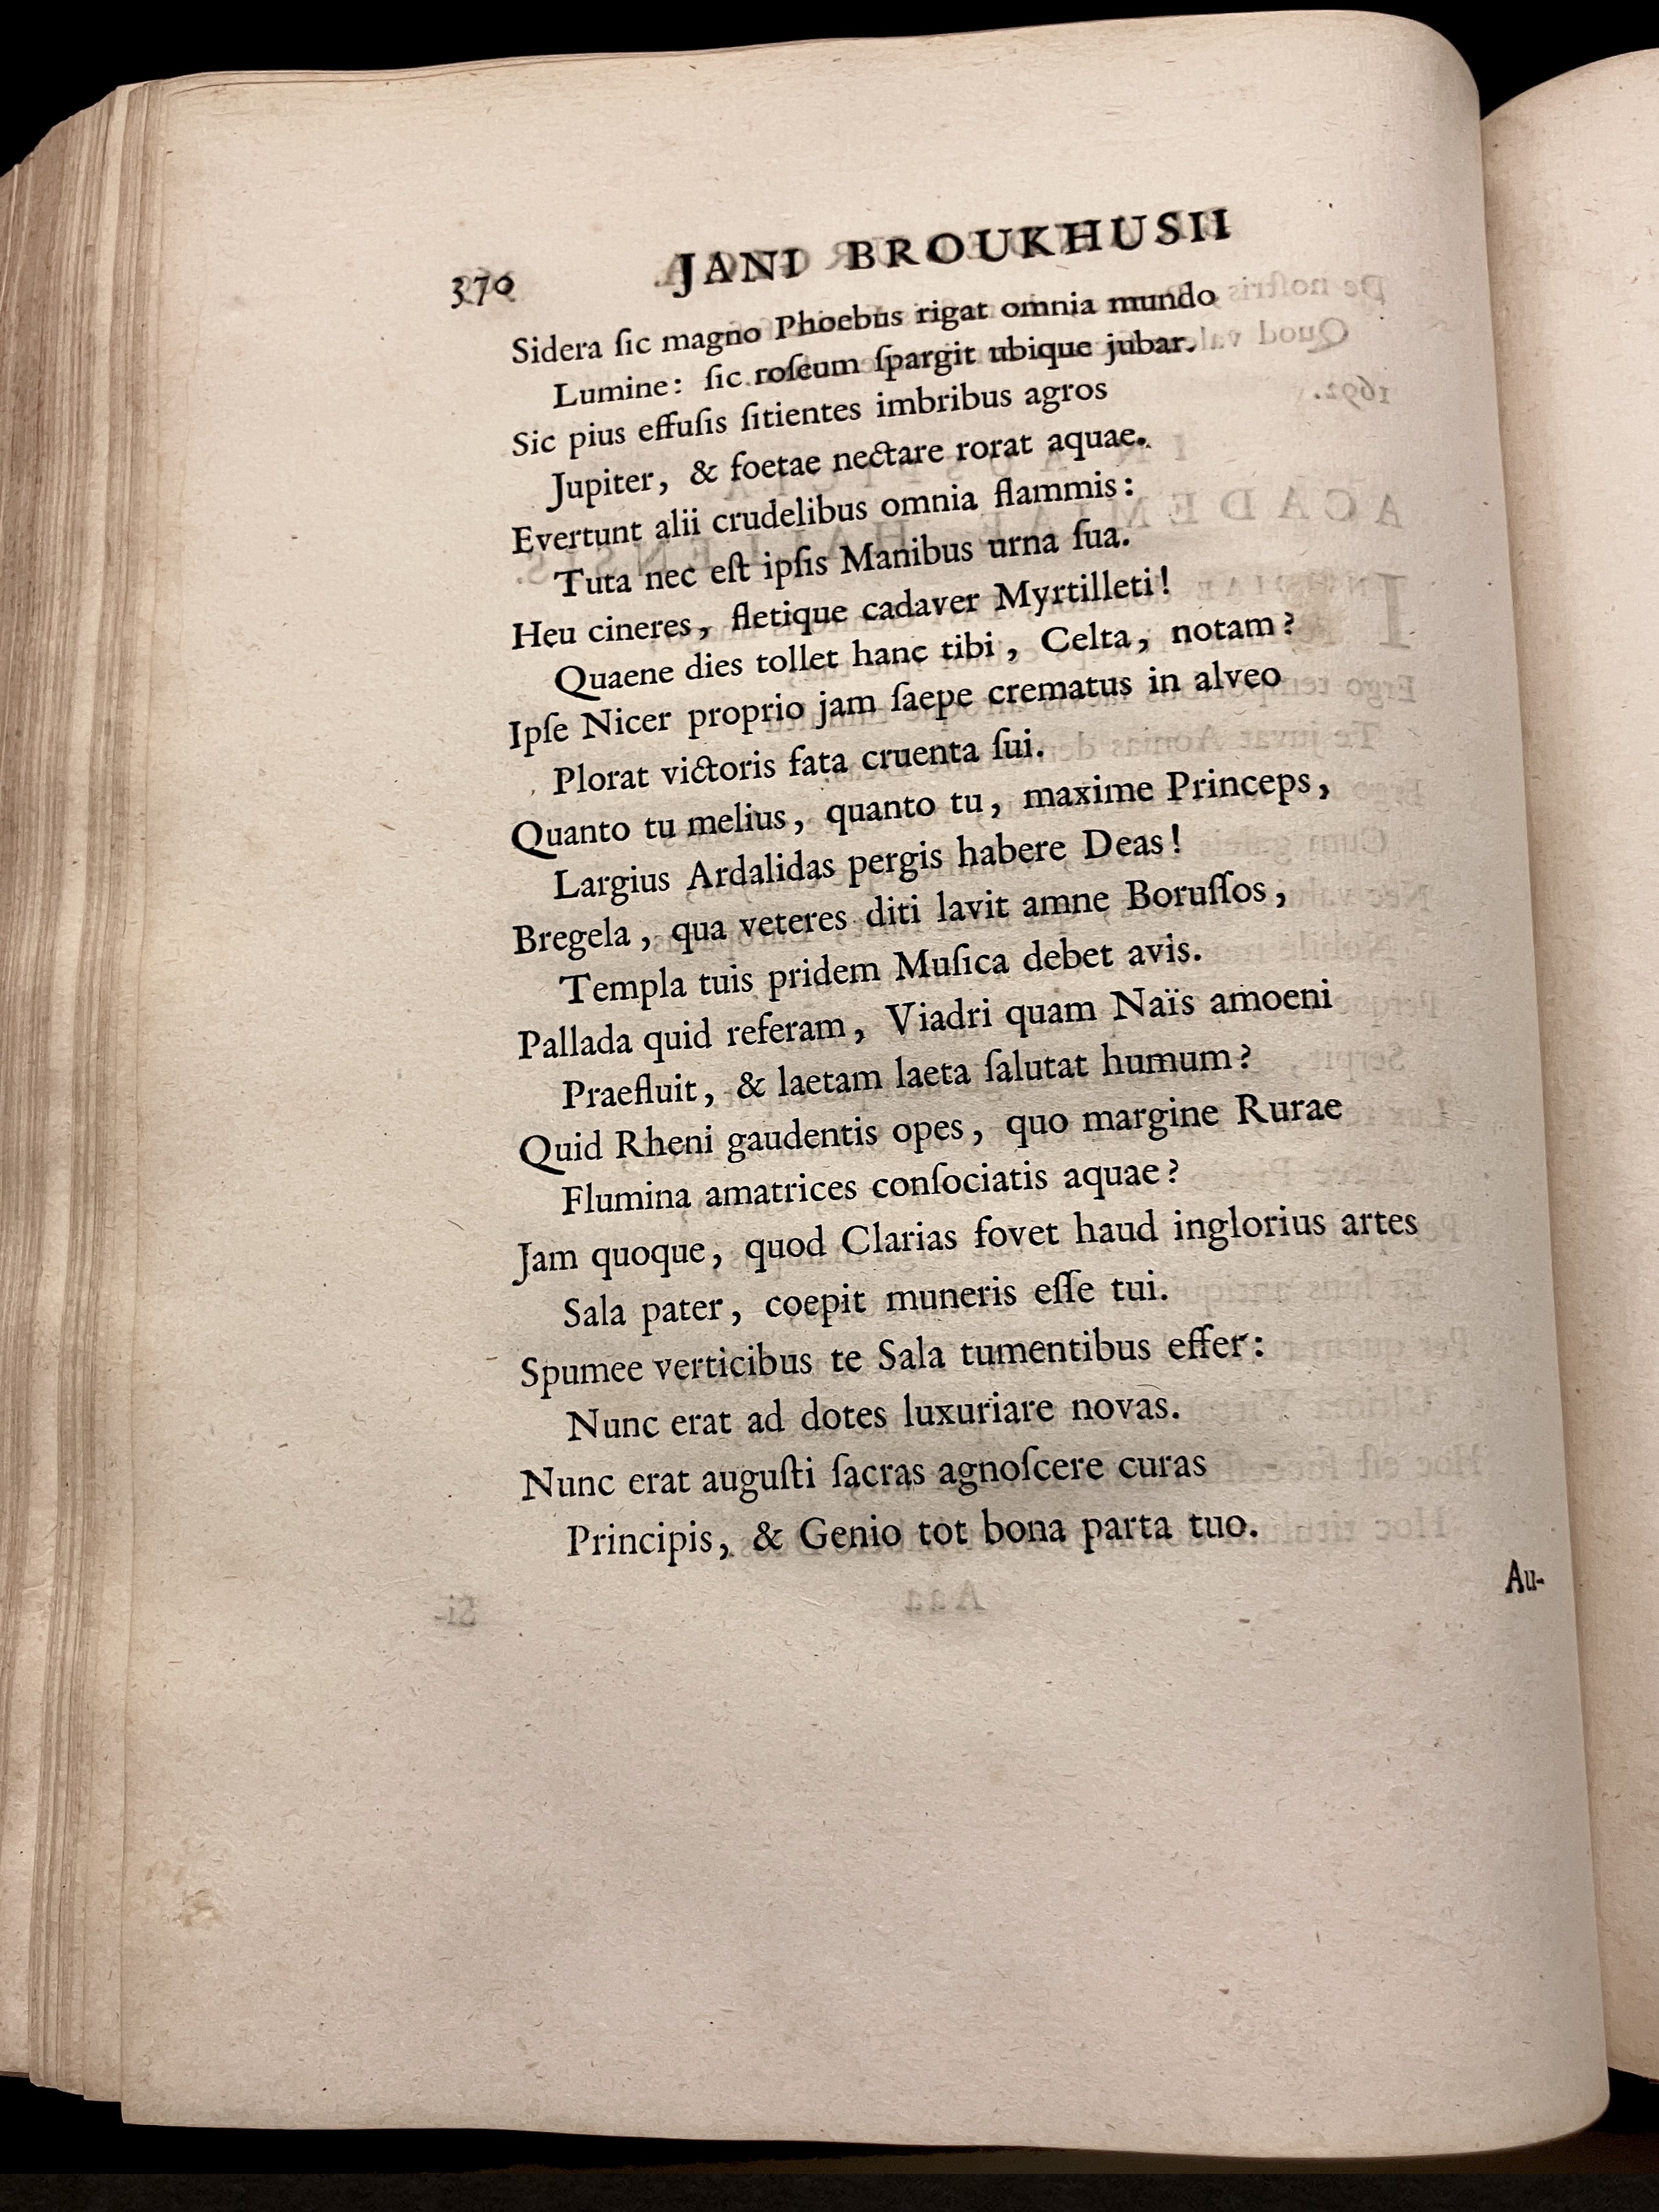 370 JANI BROUKHUSII
Sidera ſic magno Phoebus rigat omnia mundo
Lumine: ſic roſeum ſpargit ubique jubar.
Sic pius effuſis ſitientes imbribus agros
Jupiter, & foetae nectare rorat aquae.
Evertunt alii crudelibus omnia flammis:
Tuta nec eſt ipſis Manibus urna ſua.
Heu cineres, fletique cadaver Myrtilleti!
Quaene dies tollet hanc tibi, Celta, notam?
Ipſe Nicer proprio jam ſaepe crematus in alveo
Plorat victoris fata cruenta ſui.
Quanto tu melius, quanto tu, maxime Princeps,
Largius Ardalidas pergis habere Deas!
Bregela, qua veteres diti lavit amne Boruſſos,
Templa tuis pridem Muſica debet avis.
Pallada quid referam, Viadri quam Naïs amoeni
Praefluit, & laetam laeta ſalutat humum?
Quid Rheni gaudentis opes, quo margine Rurae
Flumina amatrices conſociatis aquae?
Jam quoque, quod Clarias fovet haud inglorius artes
Sala pater, coepit muneris eſſe tui.
Spumee verticibus te Sala tumentibus effer:
Nunc erat ad dotes luxuriare novas.
Nunc erat auguſti ſacras agnoſcere curas
Principis, & Genio tot bona parta tuo.
Au-